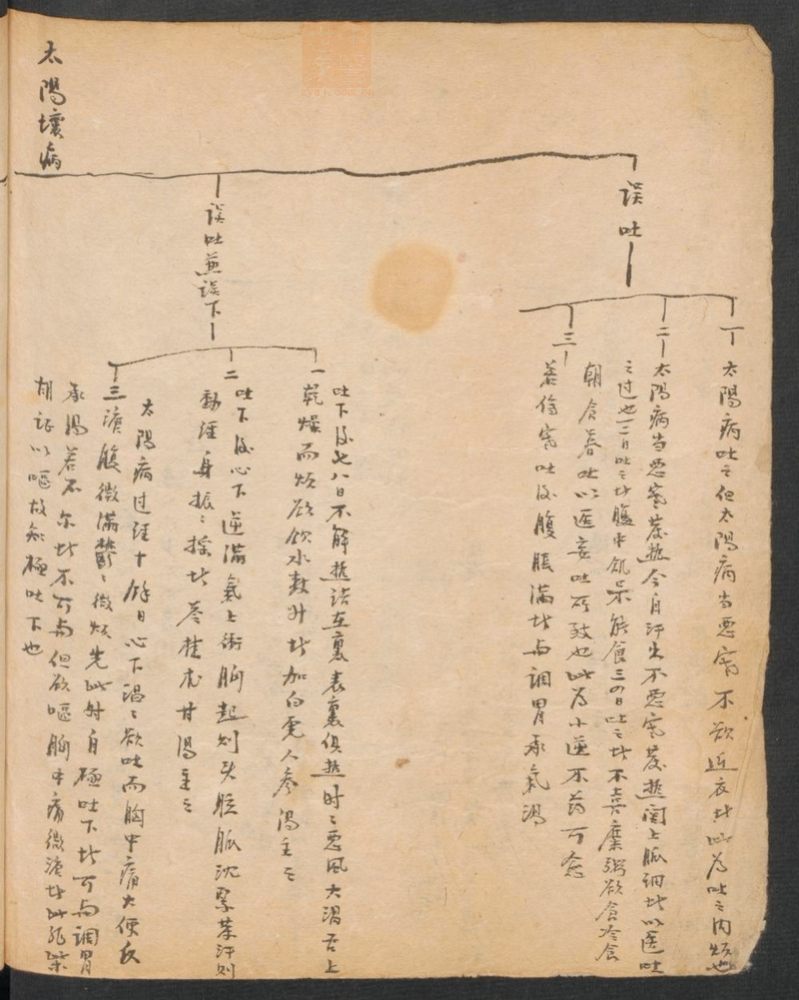 太陽壞病
誤吐
一
太陽病吐之但太陽病当悪寒不欲近衣此為吐之内煩也
二
太陽病当悪寒發热今自汗出不悪寒發热関上脈細者以医吐
之过也一二日吐之者腹中飢不能食三四日吐之者不喜糜粥欲食冷食
朝食暮吐以医妄吐所致也此為小逆不药可愈
三
若傷寒吐後腹脹滿者与調胃承氣湯
誤吐兼誤下
一
吐下後七八日不解热结在裏表裏俱热时々悪風大渴舌上
乾燥而煩欲飲水数升者加白虎人参湯主之
二
吐下後心下逆滿氣上衝胸起则头眩脈沈緊發汗则
動經身振々揺者苓桂朮甘湯主之
三
太陽病过经十餘日心下温々欲吐而胸中痛大便反
溏腹微滿鬱々微煩先此时自極吐下者可与調胃
承湯若不尔者不可与但欲嘔胸中痛微溏者此非柴
胡证以嘔故知極吐下也